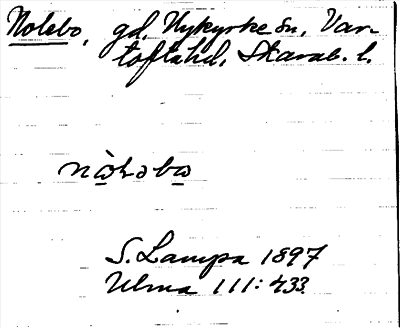 Nolebo, gd, Nykyrke sn, Var-
toftahd, Skarab. l.
nòləbo
S. Lampa 1897
Ulma 111:433.